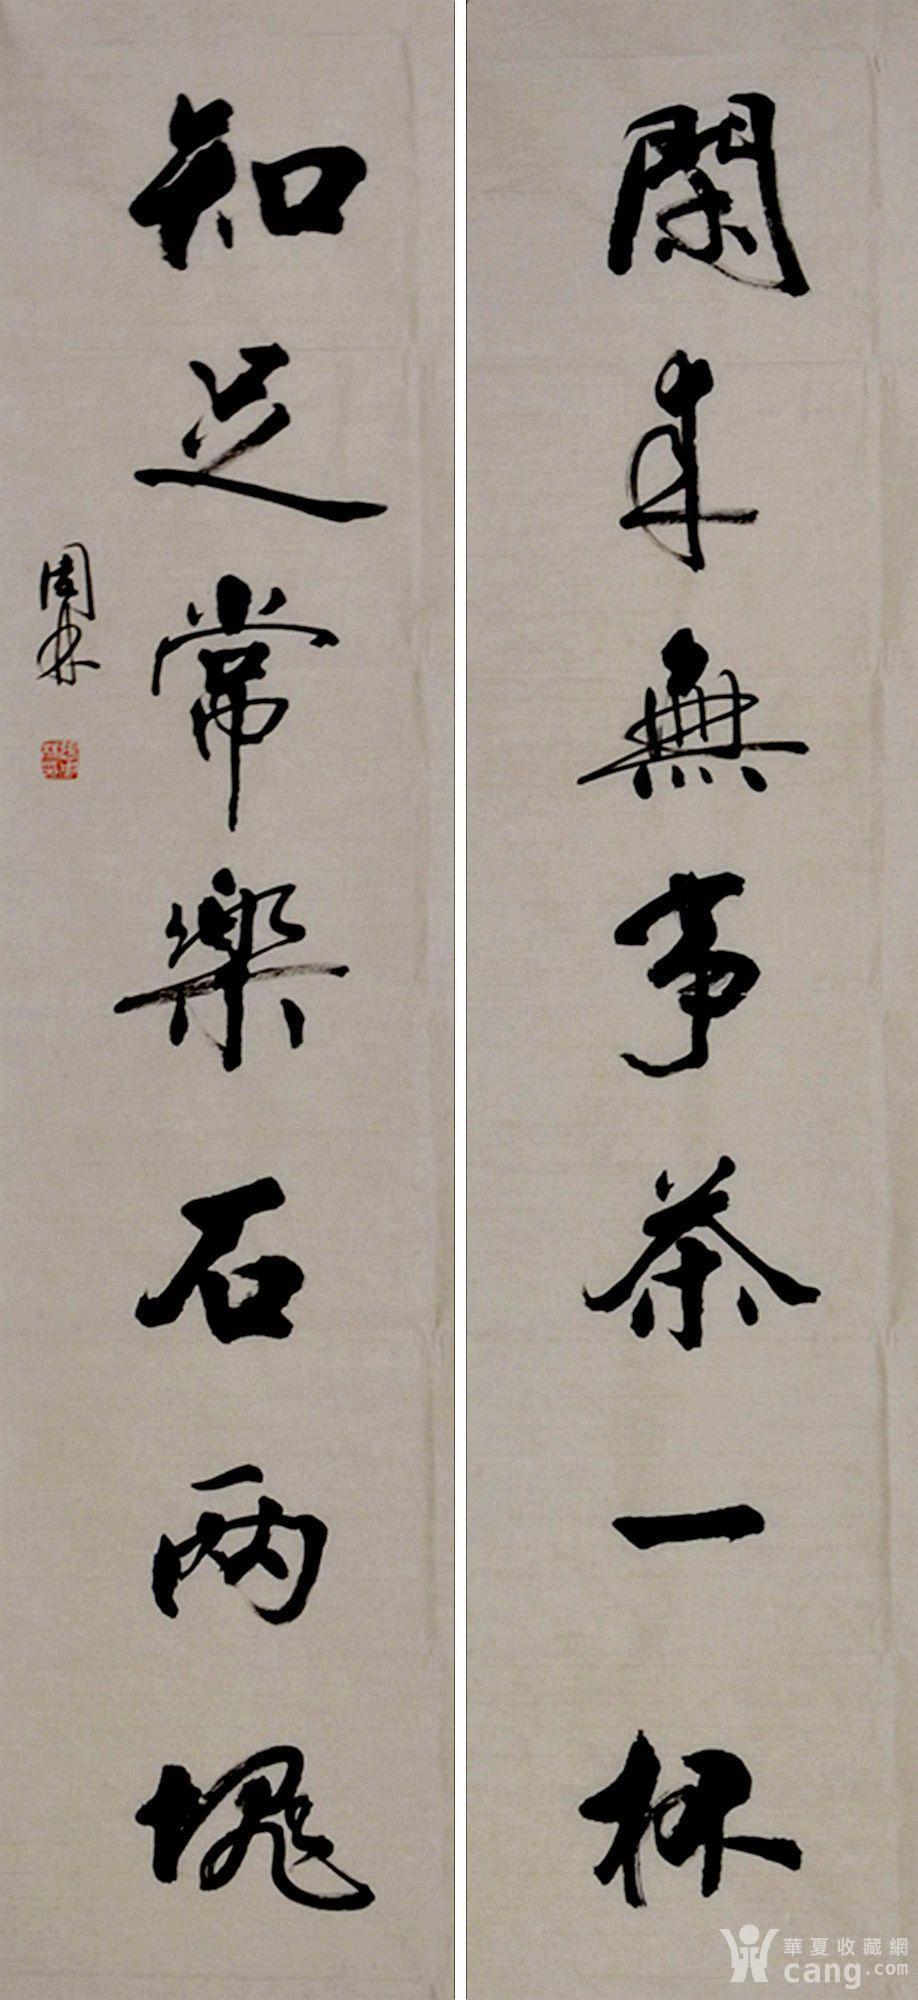 閑来無事茶一杯
知足常樂石两塊
周林
華夏收藏網
cang.com